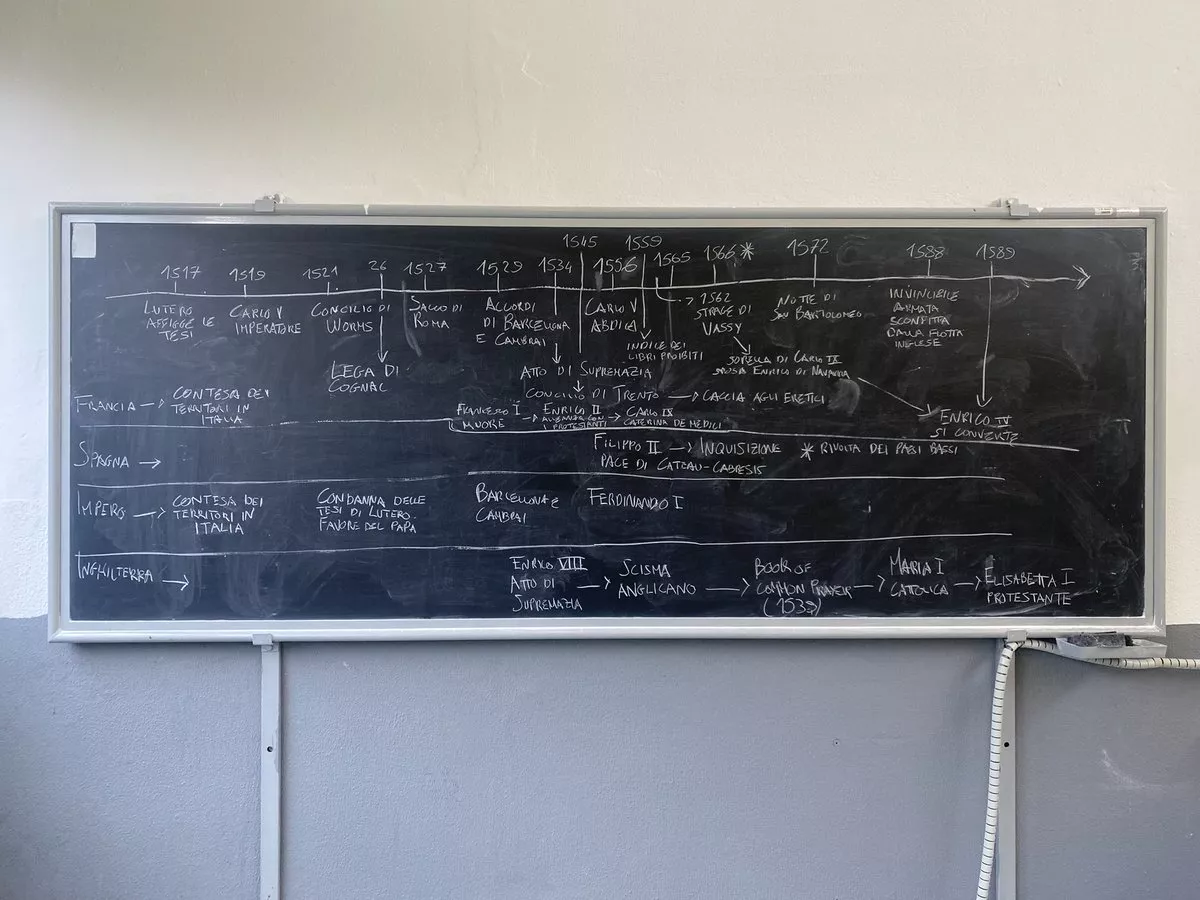 1545 1559
1517 1519 1521 26 1527 1529 1534 1556 1565 1566 * 1572 1588 1589
LUTERO
AFFIGGE LE
TESI
CARLO V
IMPERATORE
CONCILIO DI
WORMS
LEGA DI
COGNAC
SACCO DI
ROMA
ACCORDI
DI BARCELLONA
E CAMBRAI
ATTO DI SUPREMAZIA
CONCILIO DI TRENTO → CACCIA AGLI ERETICI
CARLO V
ABDICA
INDICE DEI
LIBRI PROIBITI
1562
STRAGE DI
VASSY
SORELLA DI CARLO IX
SPOSA ENRICO DI NAVARRA
NOTTE DI
SAN BARTOLOMEO
INVINCIBILE
ARMATA
SCONFITTA
DALLA FLOTTA
INGLESE
ENRICO IV
SI CONVERTE
FRANCIA → CONTESA DEI
TERRITORI IN
ITALIA
FRANCESCO I
MUORE
→ ENRICO II
ALLEANZA CON
PROTESTANTI
→ CARLO IX
CATERINA DE MEDICI
SPAGNA →
FILIPPO II → INQUISIZIONE * RIVOLTA DEI PAESI BASSI
PACE DI CATEAU-CABRESIS
IMPERO → CONTESA DEI
TERRITORI IN
ITALIA
CONDANNA DELLE
TESI DI LUTERO.
FAVORE DEL PAPA
BARCELLONA E
CAMBRAI
FERDINANDO I
INGHILTERRA →
ENRICO VIII
ATTO DI
SUPREMAZIA
→ SCISMA
ANGLICANO
→ BOOK OF
COMMON PRAYER
(1539)
→ MARIA I
CATTOLICA
→ ELISABETTA I
PROTESTANTE